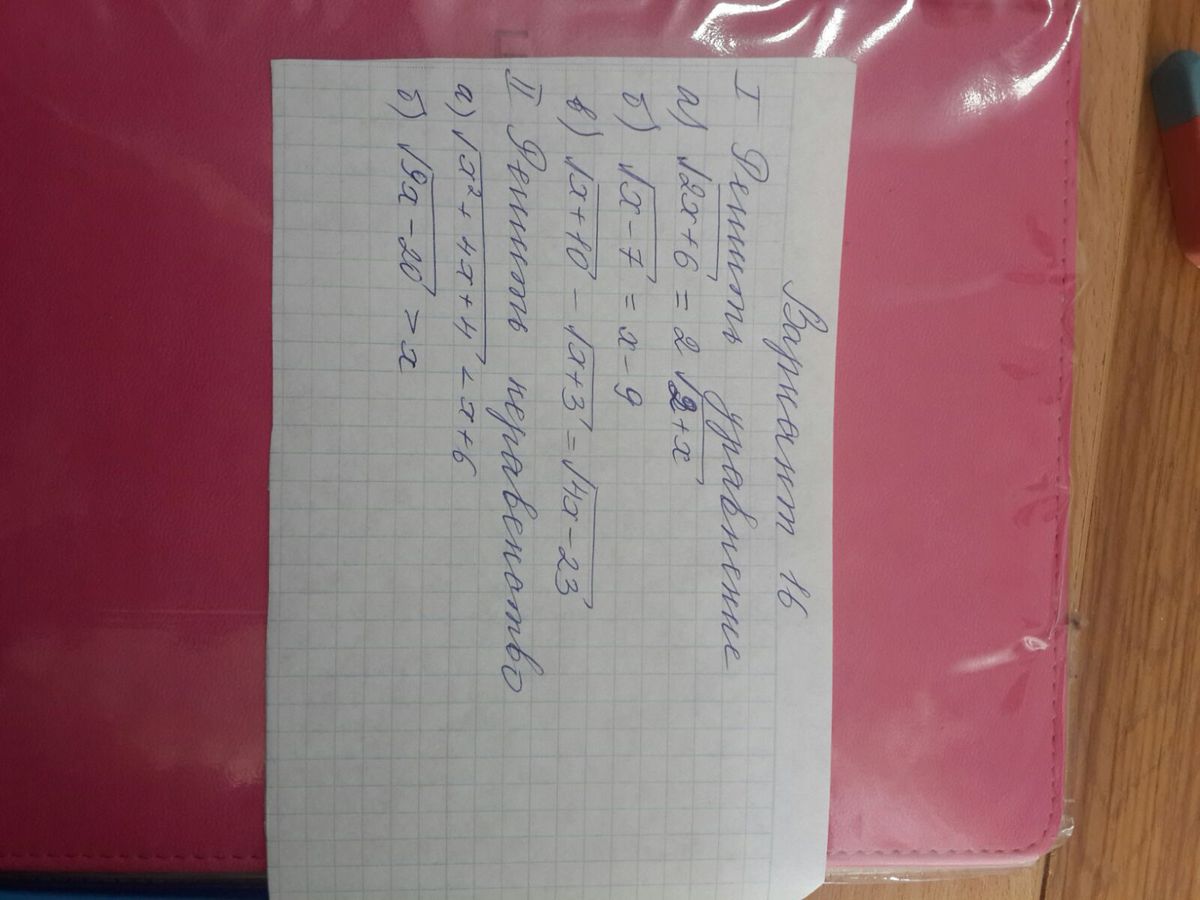 Вариант 16
I Решить уравнение
а) √2x+6 = 2√2+x
б) √x-7 = x-9
в) √x+10 - √x+3 = √4x-23
II Решить неравенство
а) √x²+4x+4 < x+6
б) √9x-20 > x